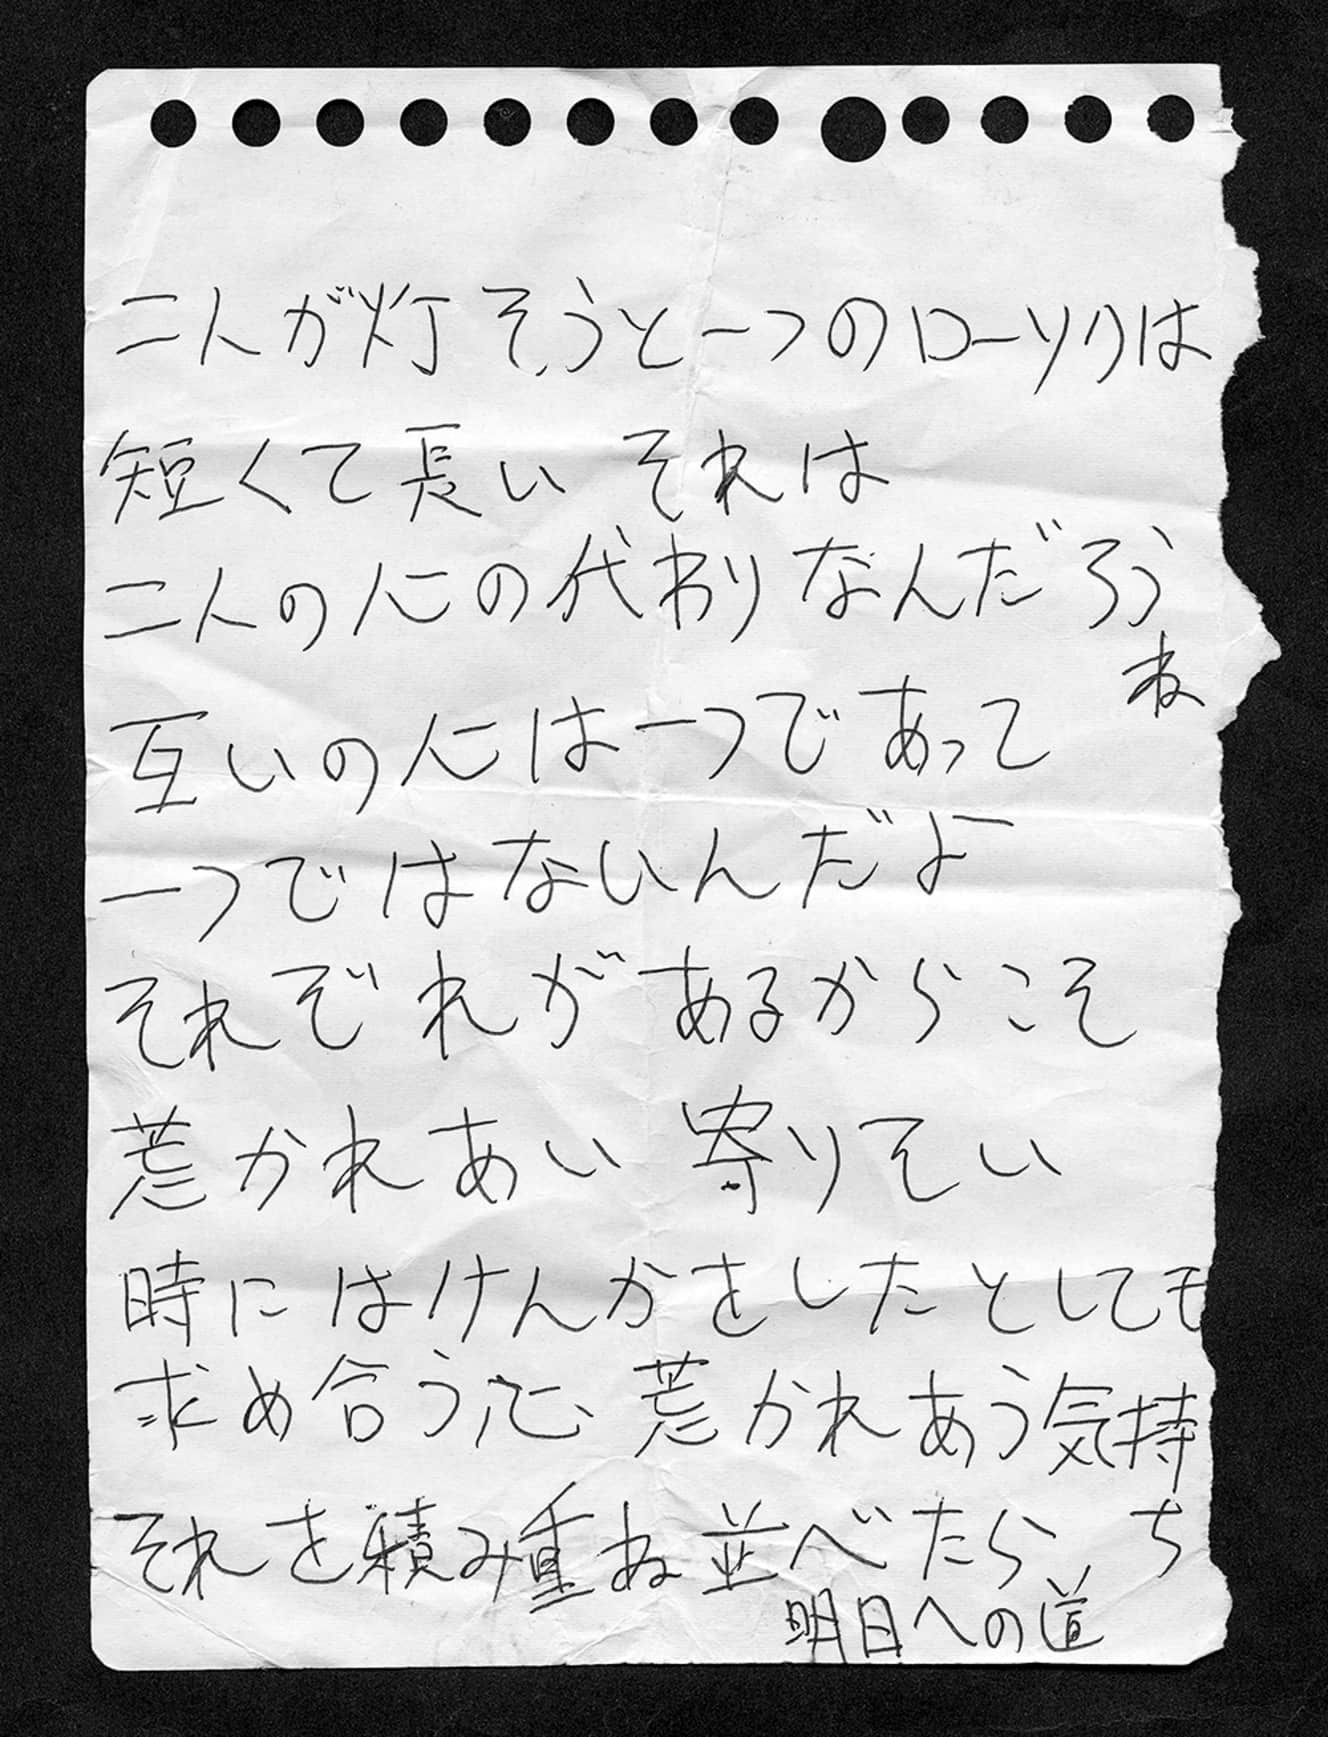 二人が灯そうと一つのローソクは
短くて長い それは
二人の心の代わりなんだろう
ね
互いの心は一つであって
一つではないんだよ
それぞれがあるからこそ
荒かれあい 寄りそい
時にはけんかをしたとしても
求め合う心 荒かれあう気持
ち
それを積み重ね並べたら、
明日への道